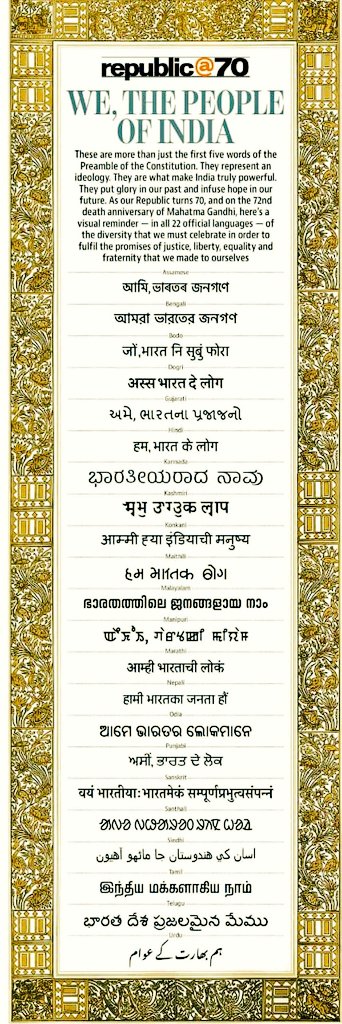 republic@70
WE, THE PEOPLE
OF INDIA
These are more than just the first five words of the
Preamble of the Constitution. They represent an
ideology. They are what make India truly powerful.
They put glory in our past and infuse hope in our
future. As our Republic turns 70, and on the 72nd
death anniversary of Mahatma Gandhi, here's a
visual reminder — in all 22 official languages — of
the diversity that we must celebrate in order to
fulfil the promises of justice, liberty, equality and
fraternity that we made to ourselves
Assamese
আমি, ভাৰতৰ জনগণে
Bengali
আমরা ভারতের জনগণ
Bodo
जों, भारत नि सुबुं फोरा
Dogri
अस्स भारत दे लोग
Gujarati
અમે, ભારતના પ્રજાજનો
Hindi
हम, भारत के लोग
Kannada
ಭಾರತೀಯರಾದ ನಾವು
Kashmiri
Konkani
आम्मी ह्या इंडियाची मनुष्य
Maithili
Malayalam
ഭാരതത്തിലെ ജനങ്ങളായ നാം
Manipuri
Marathi
आम्ही भारताची लोकं
Nepali
हामी भारतका जनता हौं
Odia
ଆମେ ଭାରତର ଲୋକମାନେ
Punjabi
ਅਸੀਂ, ਭਾਰਤ ਦੇ ਲੋਕ
Sanskrit
वयं भारतीयाः भारतमेकं सम्पूर्णप्रभुत्वसंपन्नं
Santhali
Sindhi
اسان کي هندوستان جا ماڻهو آهيون
Tamil
இந்திய மக்களாகிய நாம்
Telugu
భారత దేశ ప్రజలమైన మేము
Urdu
ہم بھارت کے عوام